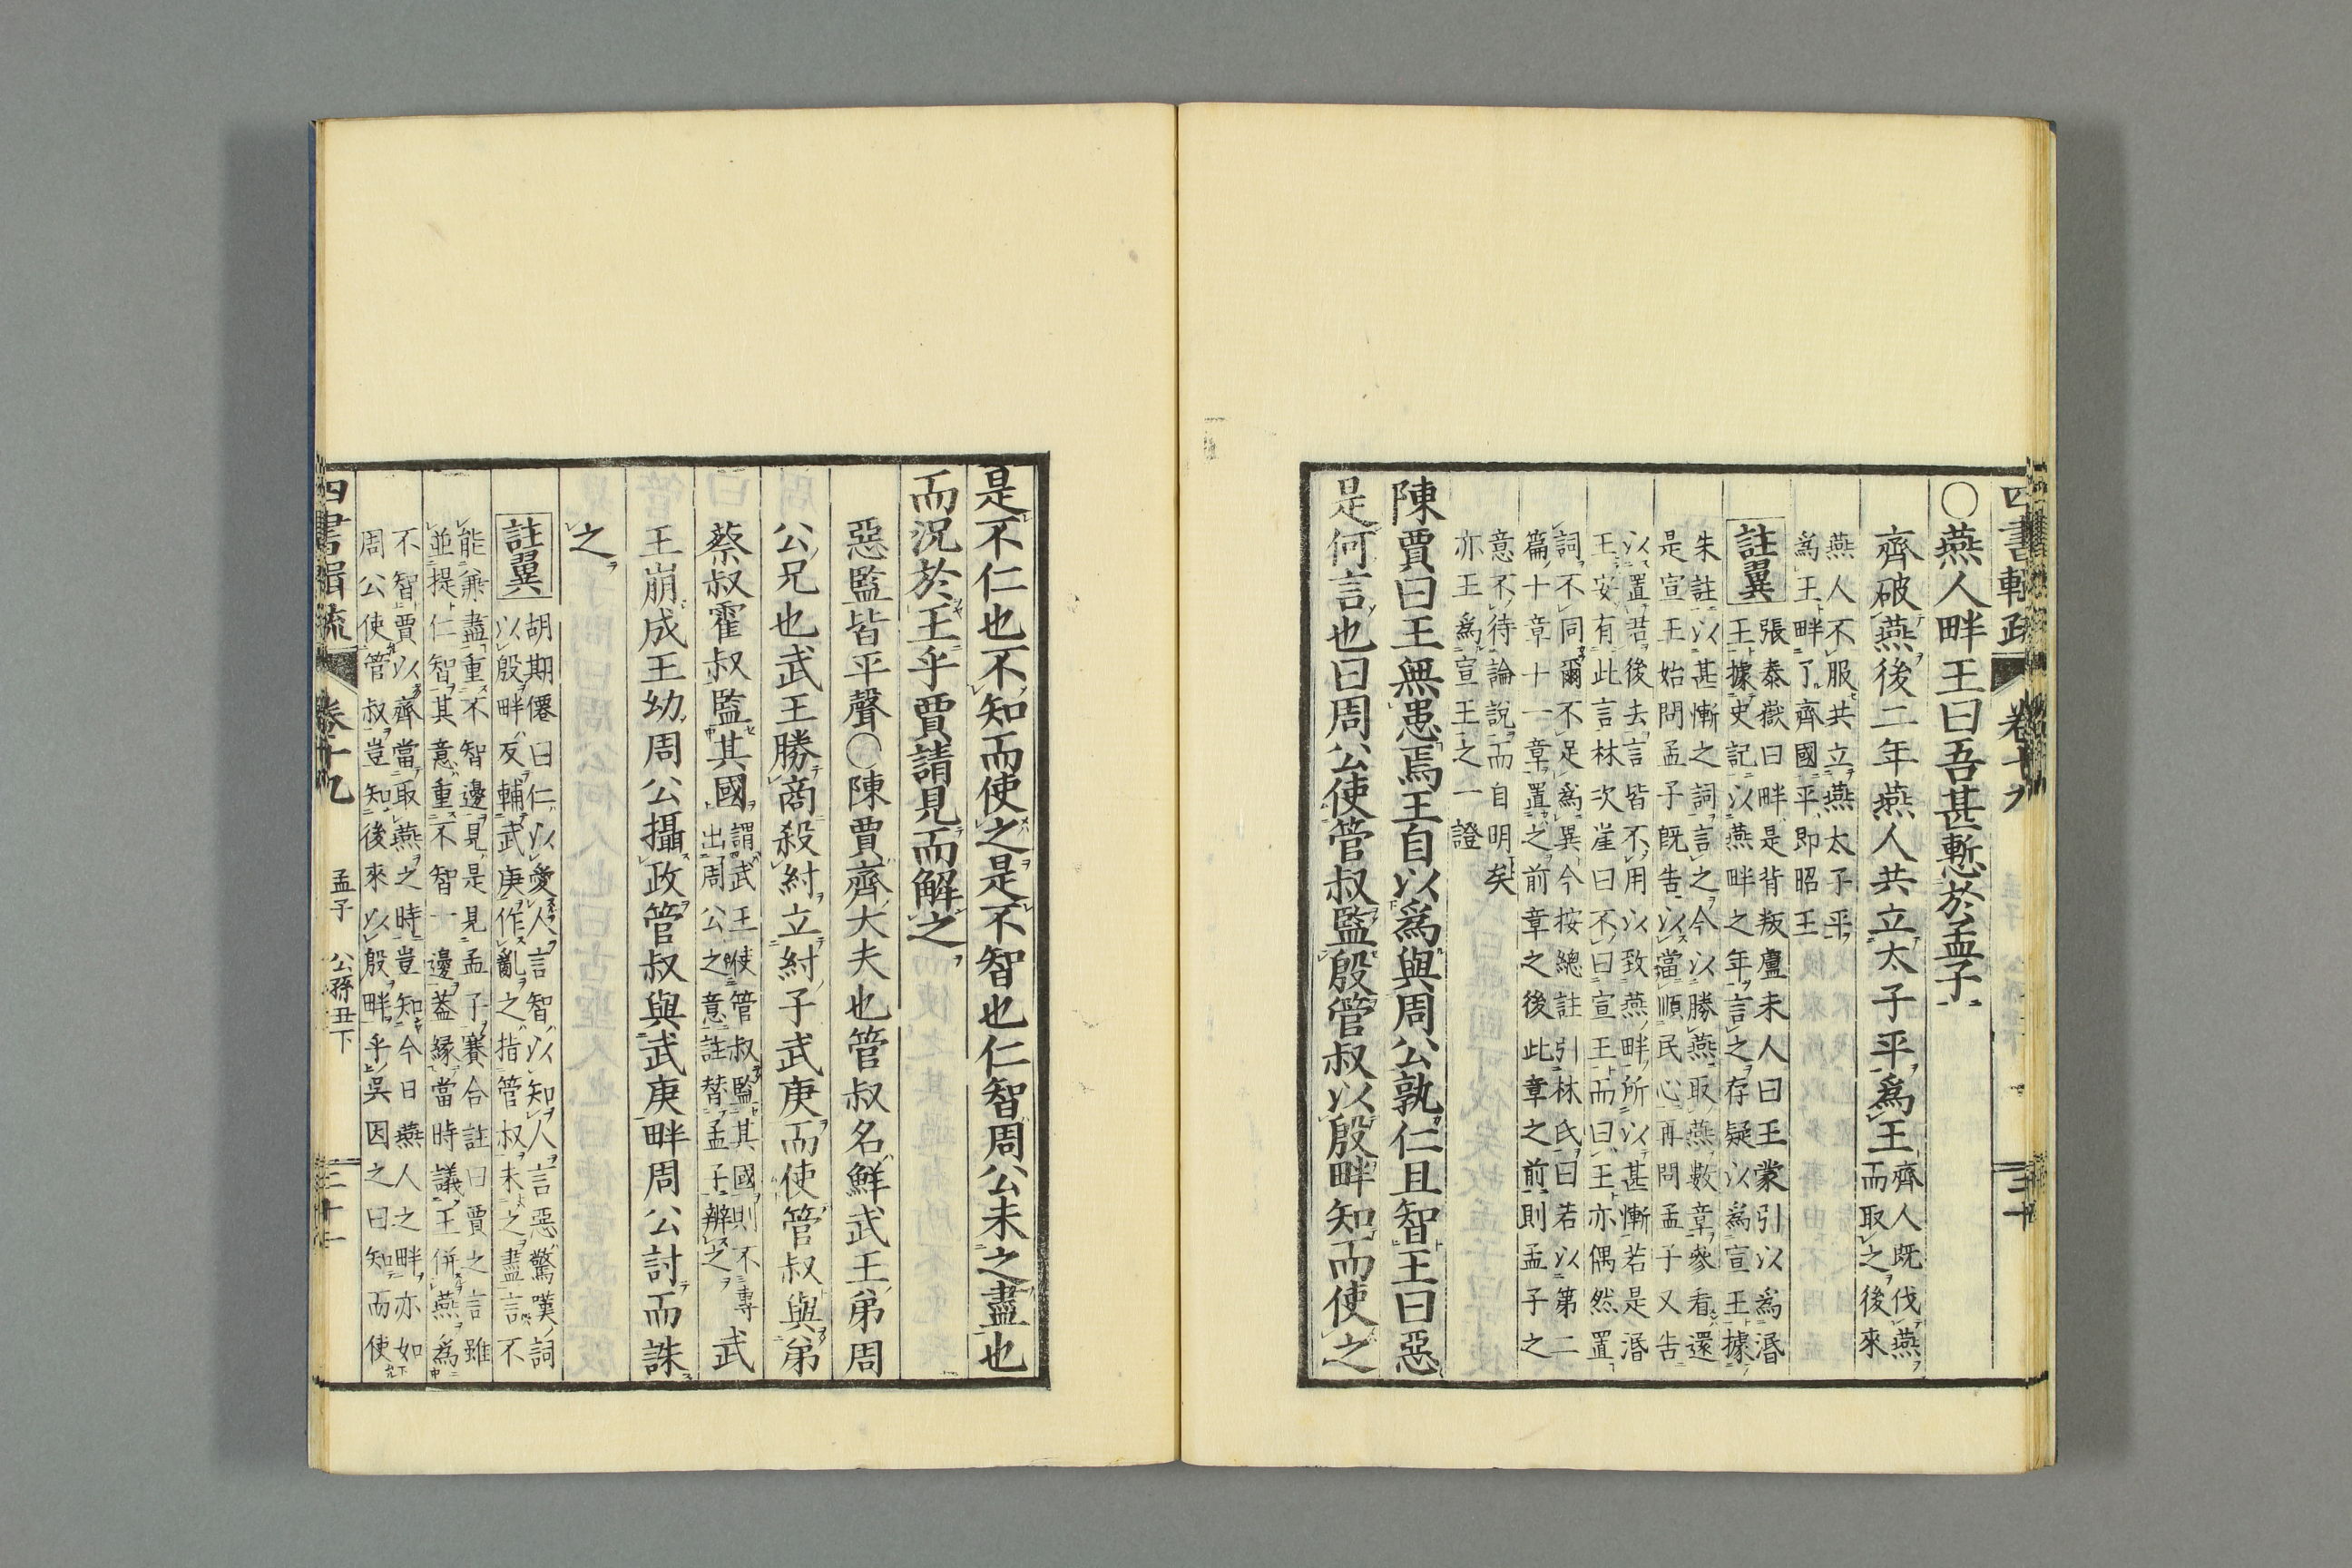 四書輯疏 卷十九 三十一
○燕人畔王曰吾甚慙於孟子
齊破燕後二年燕人共立太子平爲王齊人既伐燕
而取之後來
燕人不服共立燕太子平
爲王畔了齊國平即昭王
註翼張泰嶽曰畔是背叛盧未人曰王蒙引以爲湣
王據史記以燕畔之年言之存疑以爲宣王據
朱註以甚慚之詞言之今以勝燕取燕數章參看還
是宣王始問孟子既告以當順民心再問孟子又告
以置君後去言皆不用以致燕畔所以甚慚若是湣
王安有此言林次崖曰不曰宣王而曰王亦偶然置
詞不同爾不足爲異今按總註引林氏曰若以第二
篇十章十一章置之前章之後此章之前則孟子之
意不待論說而自明矣
亦王爲宣王之一證
陳賈曰王無患焉王自以爲與周公孰仁且智王曰惡
是何言也曰周公使管叔監殷管叔以殷畔知而使之
是不仁也不知而使之是不智也仁智周公未之盡也
而況於王乎賈請見而解之
惡監皆平聲○陳賈齊大夫也管叔名鮮武王弟周
公兄也武王勝商殺紂立紂子武庚而使管叔與弟
蔡叔霍叔監其國謂武王使管叔監其國則不專
出周公之意註替孟子辨之武
王崩成王幼周公攝政管叔與武庚畔周公討而誅
之
註翼胡期僊曰仁以愛人言智以知人言惡驚嘆詞
以殷畔友輔武庚作亂之指管叔未之盡言不
能兼盡重不智邊見是見孟子賽合註曰賈之言雖
並提仁智其意重不智一邊葢緣當時議王併燕爲
不智賈以齊當取燕之時豈知今日燕人之畔亦如
周公使管叔豈知後來以殷畔乎吳因之曰知而使
四書輯疏 卷十九 孟子 公孫丑下 三十一